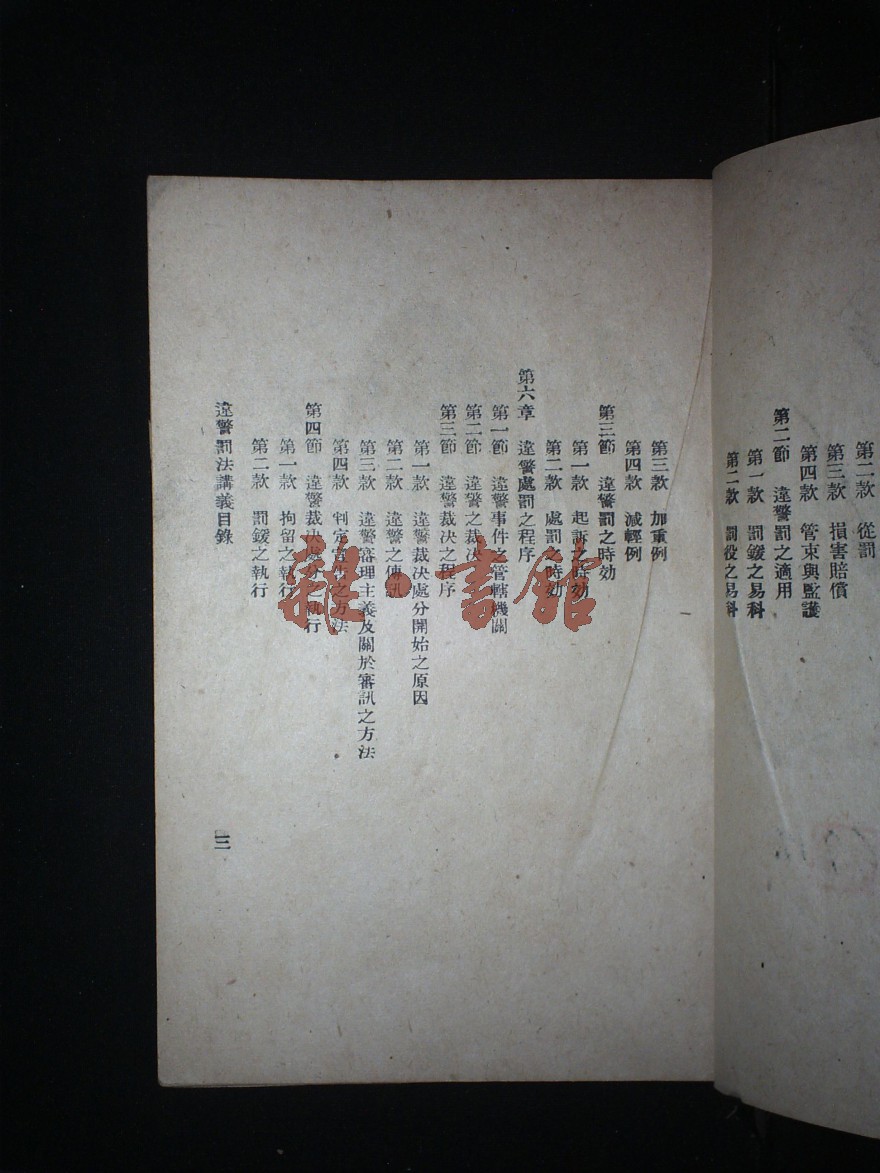 第二款　從罰
第三款　損害賠償
第四款　管束與監護
第二節　違警罰之適用
第一款　罰鍰之易科
第二款　罰役之易科
第三款　加重例
第四款　減輕例
第三節　違警罰之時効
第一款　起訴之時効
第二款　處罰之時効
第六章　違警處罰之程序
第一節　違警事件之管轄機關
第二節　違警之裁決
第三節　違警裁決之程序
第一款　違警裁決處分開始之原因
第二款　違警之傳訊
第三款　違警審理主義及關於審訊之方法
第四款　判定宣告之方法
第四節　違警裁決處分之執行
第一款　拘留之執行
第二款　罰鍰之執行
違警罰法講義目錄
三
雜·書館